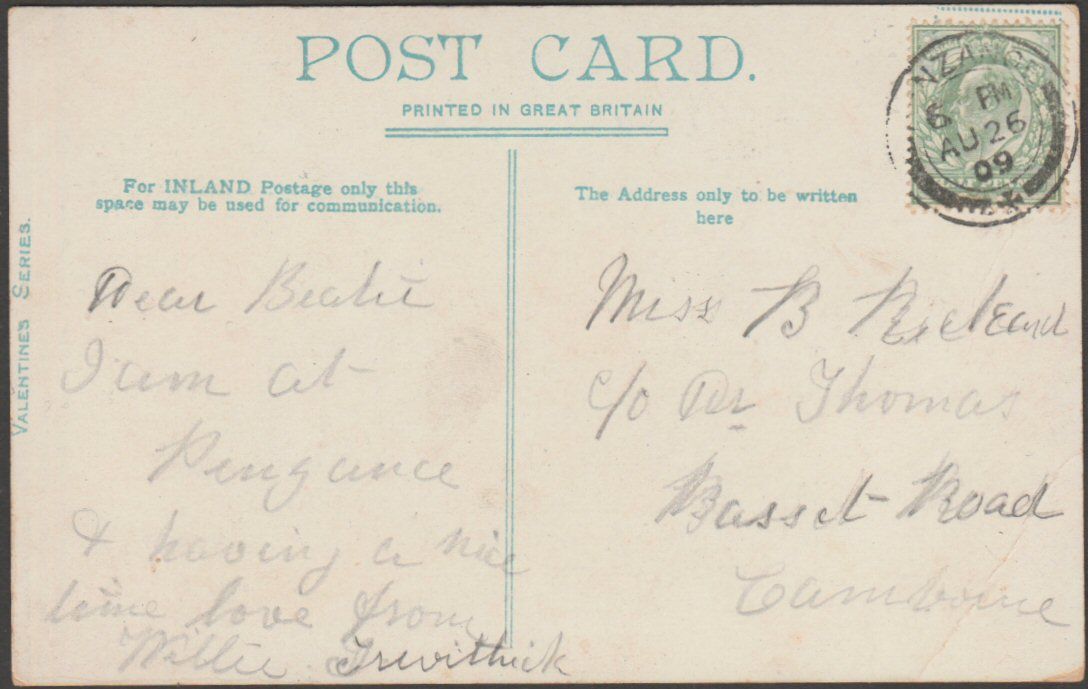 POST CARD.
PRINTED IN GREAT BRITAIN
For INLAND Postage only this
space may be used for communication.
The Address only to be written
here
VALENTINE'S SERIES.
NZANCE
6 PM
AU 26
09
Dear Beatie
I am at
Penzance
& having a nice
time love from
Willie Trevithick
Miss B Rickeard
c/o Dr Thomas
Basset Road
Camborne